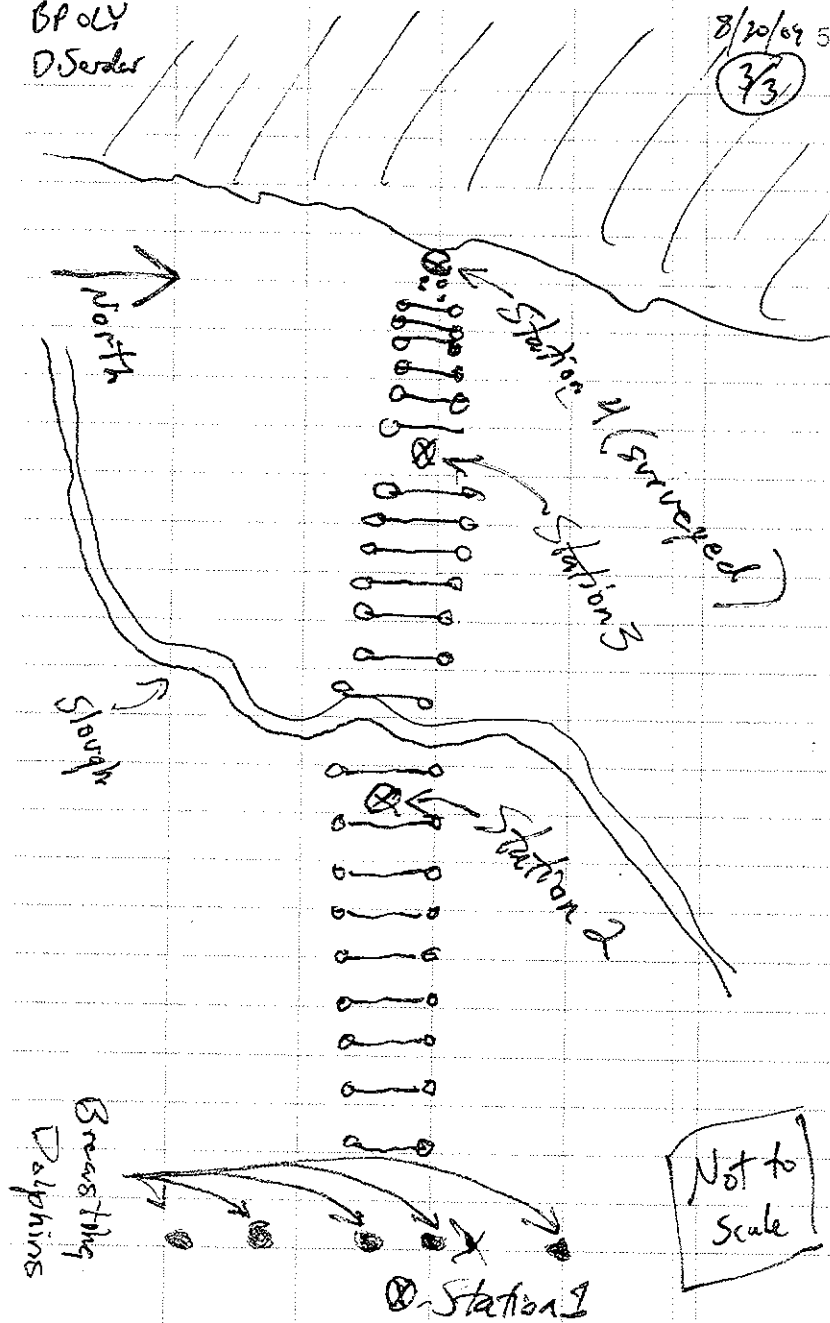 BP OLY
D. Serdar
8/20/09 5
3/3
North
Station 4 (surveyed)
Station 3
Slough
Station 2
Breasting
Dolphins
Not to
Scale
Station 1